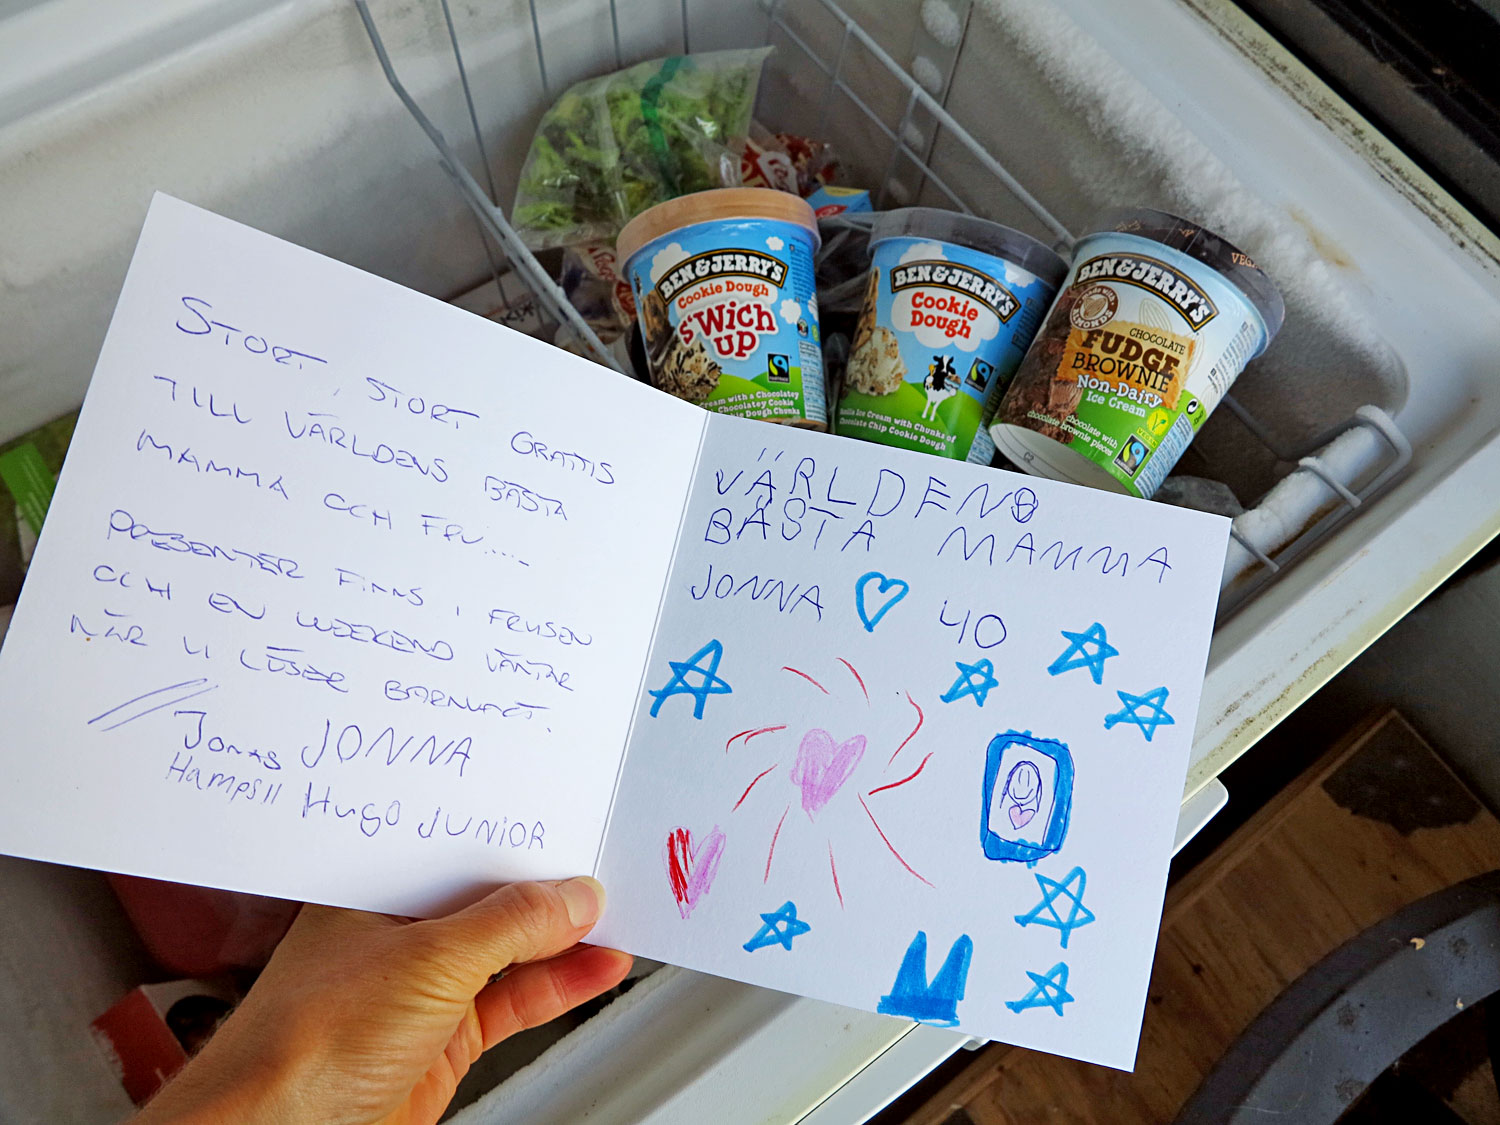 STORT, STORT GRATTIS
TILL VÄRLDENS BÄSTA
MAMMA OCH FRU.....
PRESENTER FINNS I FRYSEN
OCH EN WEEKEND VÄNTAR
NÄR VI LÖSER BARNVAKT.
JONAS JONNA
Hampsii Hugo JUNIOR
VÄRLDENS
BÄSTA MAMMA
JONNA 40
BEN & JERRY'S
Cookie Dough
S'Wich
UP
FAIRTRADE
Cream with a Chocolatey
Chocolatey Cookie
Dough Chunks
BEN & JERRY'S
Cookie
Dough
Vanilla Ice Cream with Chunks of
Chocolate Chip Cookie Dough
VEGA
BEN & JERRY'S
ALMONDS
CHOCOLATE
FUDGE
BROWNIE
Non-Dairy
Ice Cream
chocolate with
chocolate brownie pieces